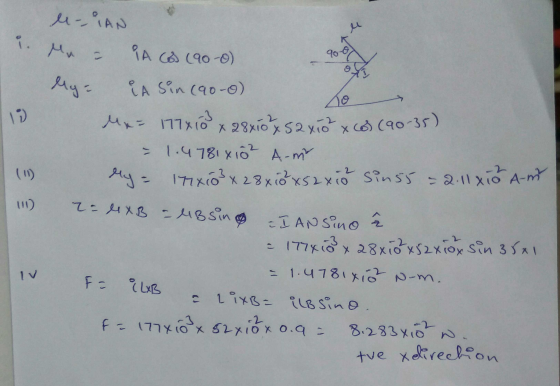 μ = iAN
i. μx = iA cos (90-θ)
μy = iA Sin (90-θ)
μ
90-θ
θ
I
θ
ii) μx = 177×10⁻³ × 28×10⁻² × 52×10⁻² × cos (90-35)
= 1.4781×10⁻² A-m²
(11) μy = 177×10⁻³ × 28×10⁻² × 52×10⁻² Sin 55 = 2.11×10⁻² A-m²
iii) τ = μ×B = μB sinφ = I AN Sinθ ẑ
= 177×10⁻³ × 28×10⁻² × 52×10⁻² × Sin 35 × 1
= 1.4781 × 10⁻² N-m.
iv F = iL×B = L i×B = iLB Sinθ.
F = 177×10⁻³ × 52×10⁻² × 0.9 = 8.283×10⁻² N.
+ve x direction